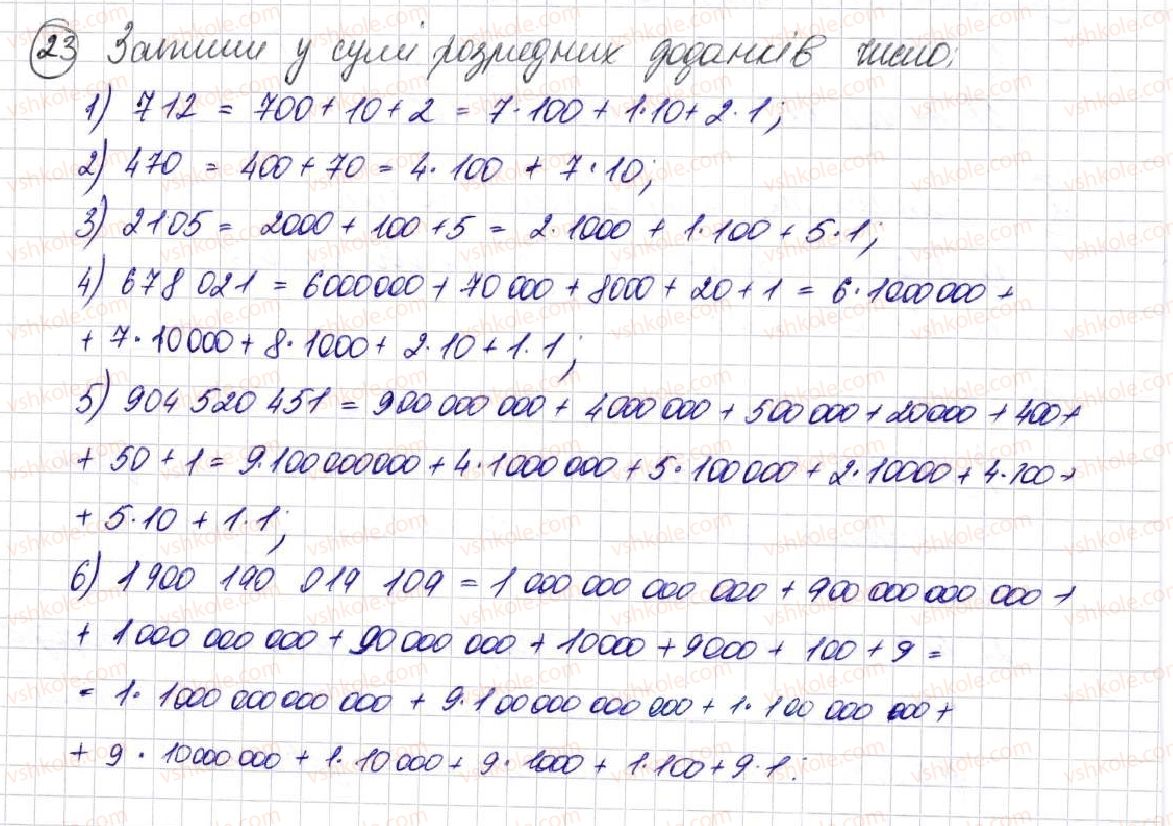 23 Запиши у сумі розрядних доданків число:
1) 712 = 700 + 10 + 2 = 7·100 + 1·10 + 2·1;
2) 470 = 400 + 70 = 4·100 + 7·10;
3) 2105 = 2000 + 100 + 5 = 2·1000 + 1·100 + 5·1;
4) 678 021 = 6000000 + 70 000 + 8000 + 20 + 1 = 6·1000 000 +
+ 7·10 000 + 8·1000 + 2·10 + 1·1;
5) 904 520 451 = 900 000 000 + 4000 000 + 500 000 + 20000 + 400 +
+ 50 + 1 = 9·100 000 000 + 4·1000 000 + 5·100 000 + 2·10000 + 4·100 +
+ 5·10 + 1·1;
6) 1 900 190 019 109 = 1 000 000 000 000 + 900 000 000 000 +
+ 1 000 000 000 + 90 000 000 + 10000 + 9000 + 100 + 9 =
= 1·1000 000 000 000 + 9·100 000 000 000 + 1·100 000 000 +
+ 9·10 000 000 + 1·10 000 + 9·1000 + 1·100 + 9·1.
vshkole.com